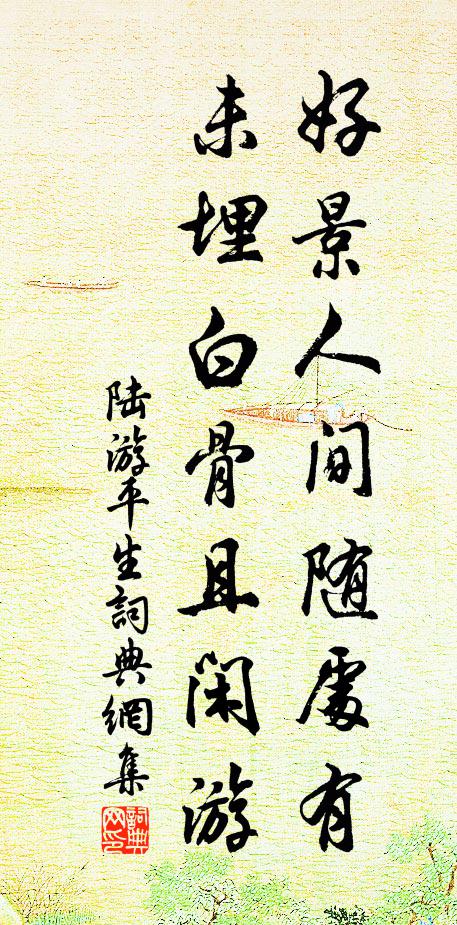 好景人间随處有
未埋白骨且閑游
陆游平生詞典網集
詞典网印